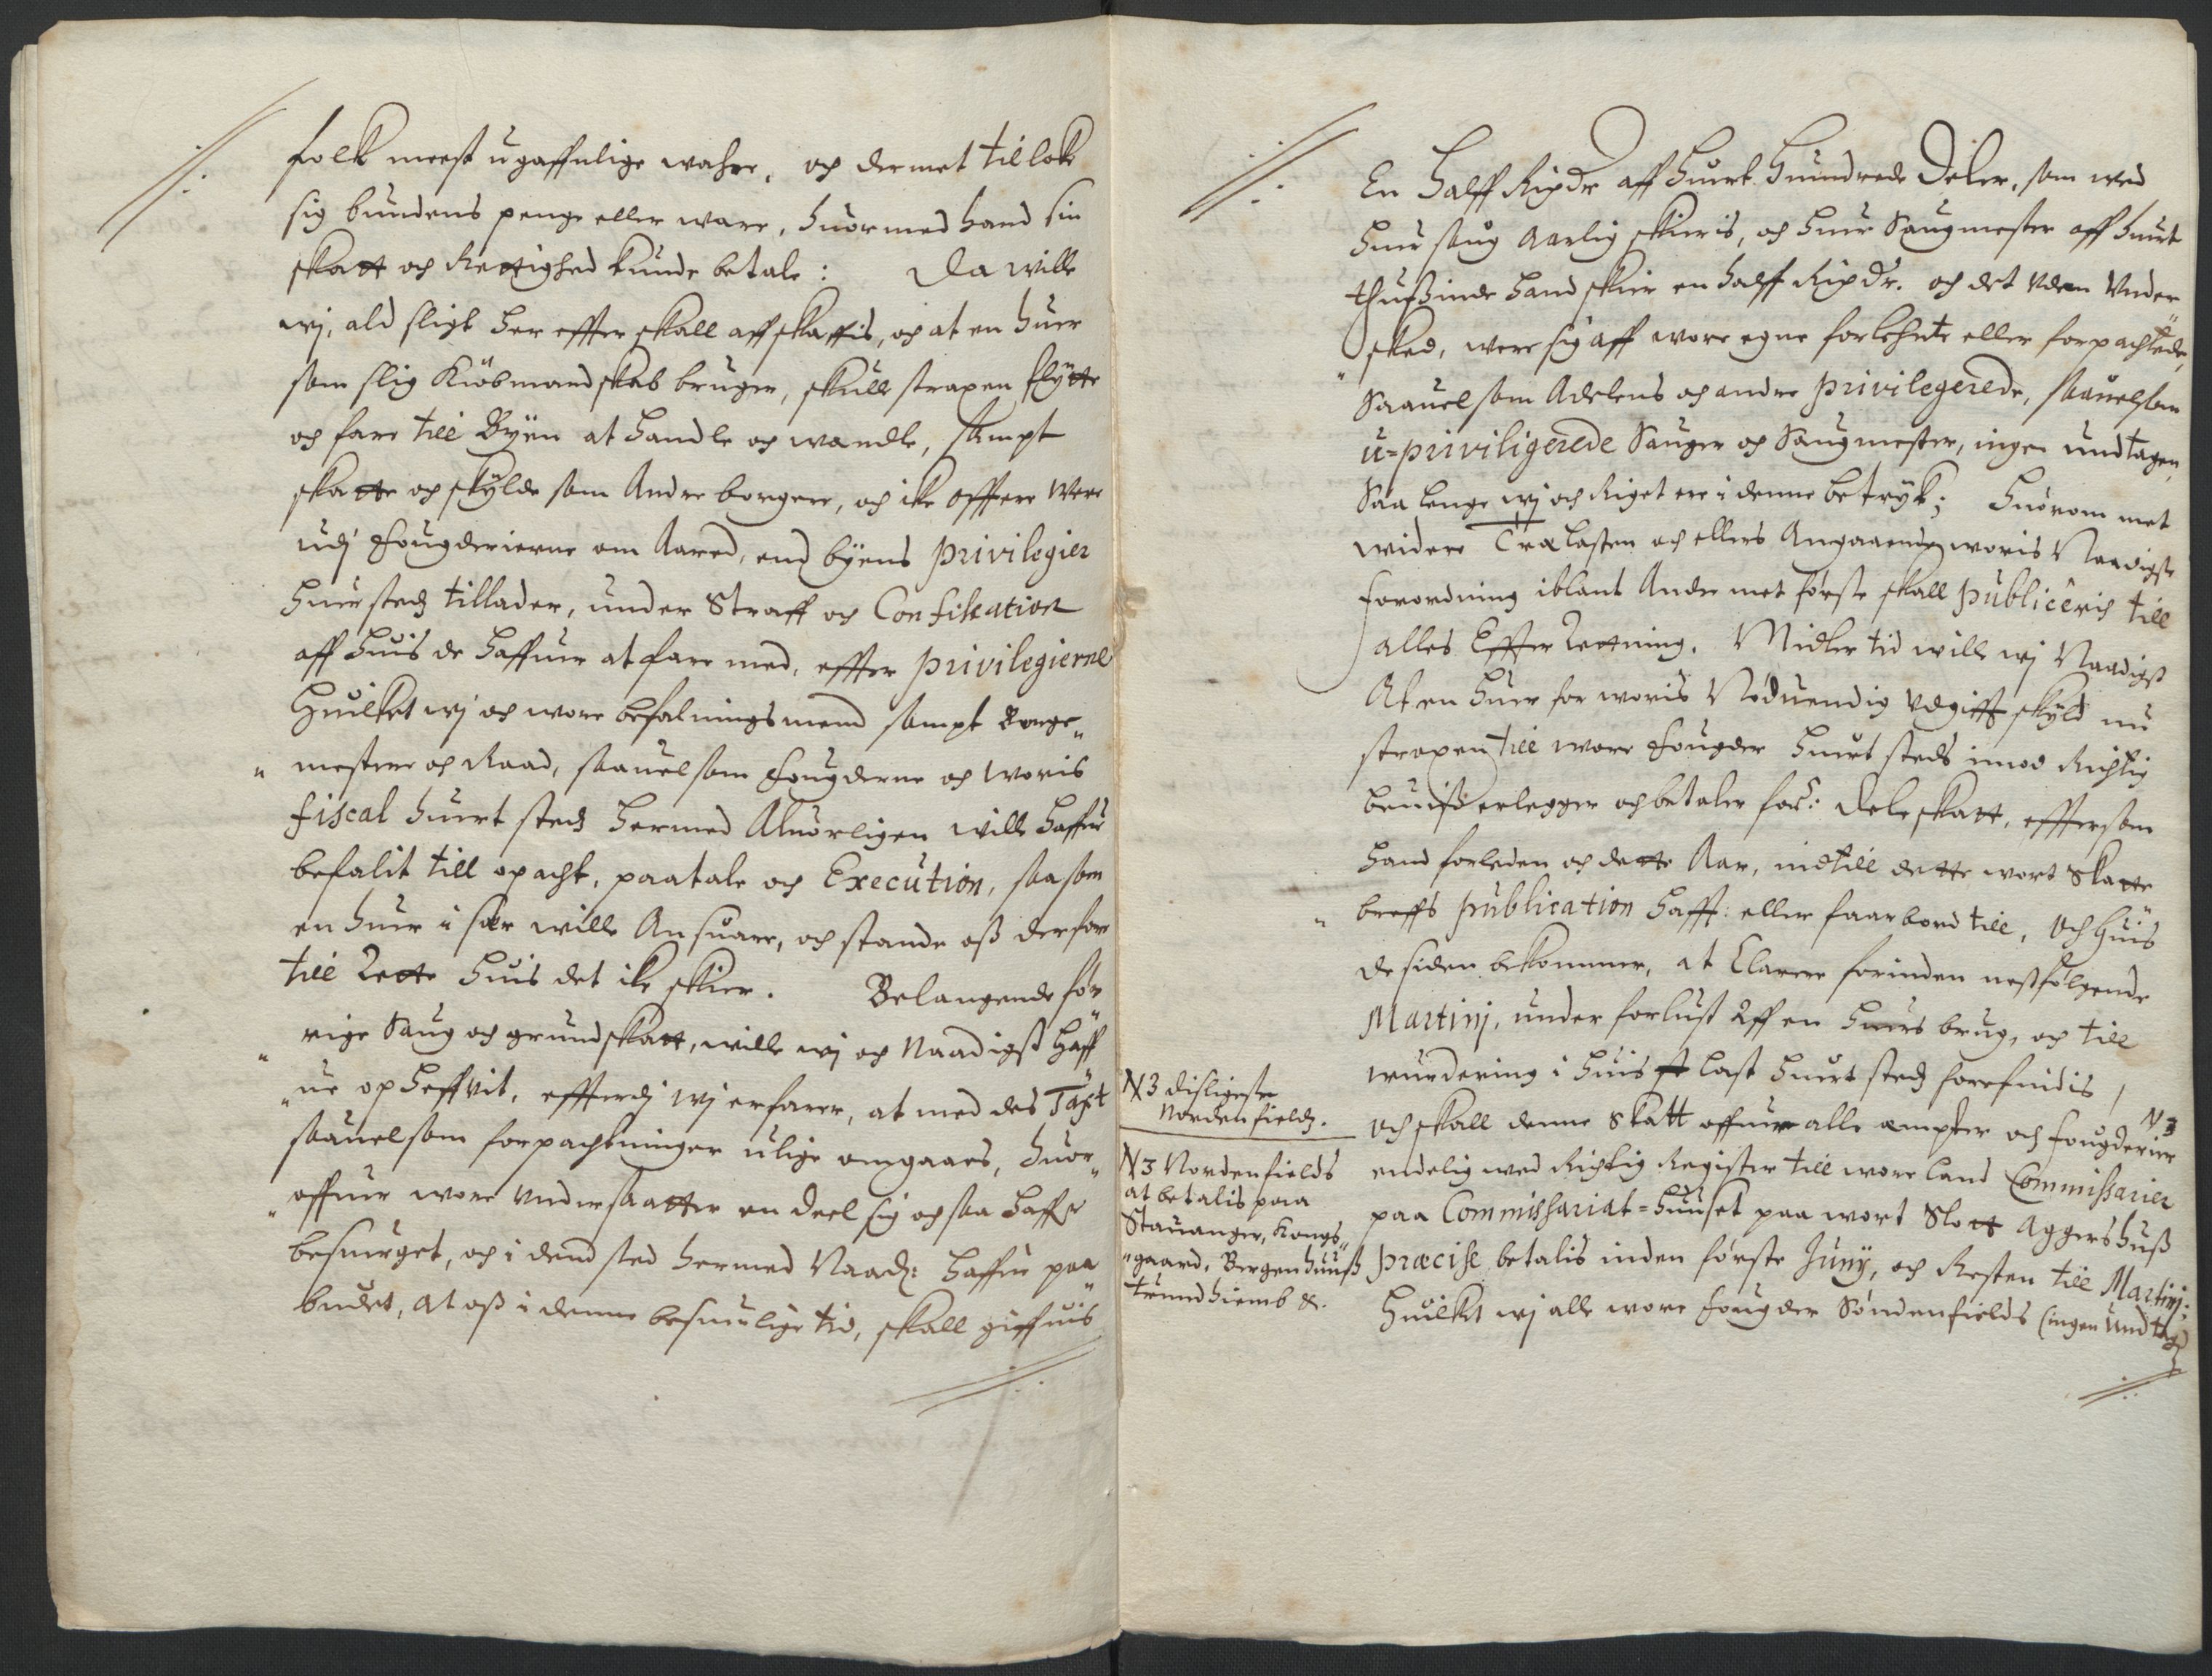 folck meest ugaffnlige wahre, och dermet tilloke
sig bundens penge eller ware, huormed hand sin
skatt och Rettighed kunde betale: Da wille
wj, ald sligt her effter skall affskaffis, och at en huer
som slig Kiøbmandskab bruger, skulle straxen flytte
och fare till Byen at handle och wandle, sampt
skatte och skylde som Andre borgere, och ike offtere were
udj fougderierne om Aaret, end byens privilegier
huer steds tillader, under Straff och Confiskation
aff huis de haffuer at fare med, effter privilegierne
Huilket wj och wore befalningsmend sampt Borge"
" mestere och Raad, saauelsom fougderne och woris
fiscal huert steds hermed Aluorligen wille haffue
befalit till opacht, paatale och Execution, saasom
en huer i sær wille Ansuare, och stande oss derfore
till Rette huis det ike skier. Belangende før"
" rige Saug och grundskatt, wille wj och Naadigst haff"
" ue opheffuit, effterdj wj erfarer, at med des Taxt
saauelsom forpachtninger ulige omgaaes, huor"
" offuer wore undersaatter en deel sig och saa haffr
besuerget, och i dend sted hermed Naadl: haffue paa"
budet, at oss i denne besuerlige tid, skall giffuis
En halff Rixdr aff huert hundrede deler, som wed
huer saug Aarlig skieris, och huer Saugmester aff huert
thusinde hand skier en halff Rixdr. och det uden under"
" sked, were sig aff wore egne forlehnte eller forpachtede,
Saauelsom Adelens och andre privilegerede, saauelsom
u=priviligerede Sauger och Saugmester, ingen undtagen,
Saa lenge wj och Riget ere i denne betryk; huorom met
widere Trælasten och ellers Angaaende woris Naadigste
forordning iblant Andre met første skall publiceris till
alles Effter Retning. Midler tid wille wj Naadigst
At en huer for woris Nøduendig udgifft skyld nu
straxen till wore fougder huert steds imod Richtig
beuiss erlegger och betaler forne: deleskatt, efftersom
hand forleden och dette Aar, indtill dette wort Skatte"
" breffs publication hafft: eller faar bord till, och huis
de siden bekommer, at Clarere forinden nestfølgende
Martinj, under forlust Aff en huers brug, och till
wurdering i huis last huert steds forefindis /
och skall denne skatt offuer alle ampter och fougderier N3
endelig med Richtig Register till wore land Commissarier
paa Commissariat=huuset paa wort Slott Aggershuss
præcise betalis inden første Junij, och Resten till Martinj:
Huilket wj alle wore fougder Søndenfields (ingen undtagen
N3 disligeste
Nordenfields.
N3 Nordenfields
at betalis paa
Stauanger, Kongs"
"gaard, Bergenhuuss
Trundhiemb &.